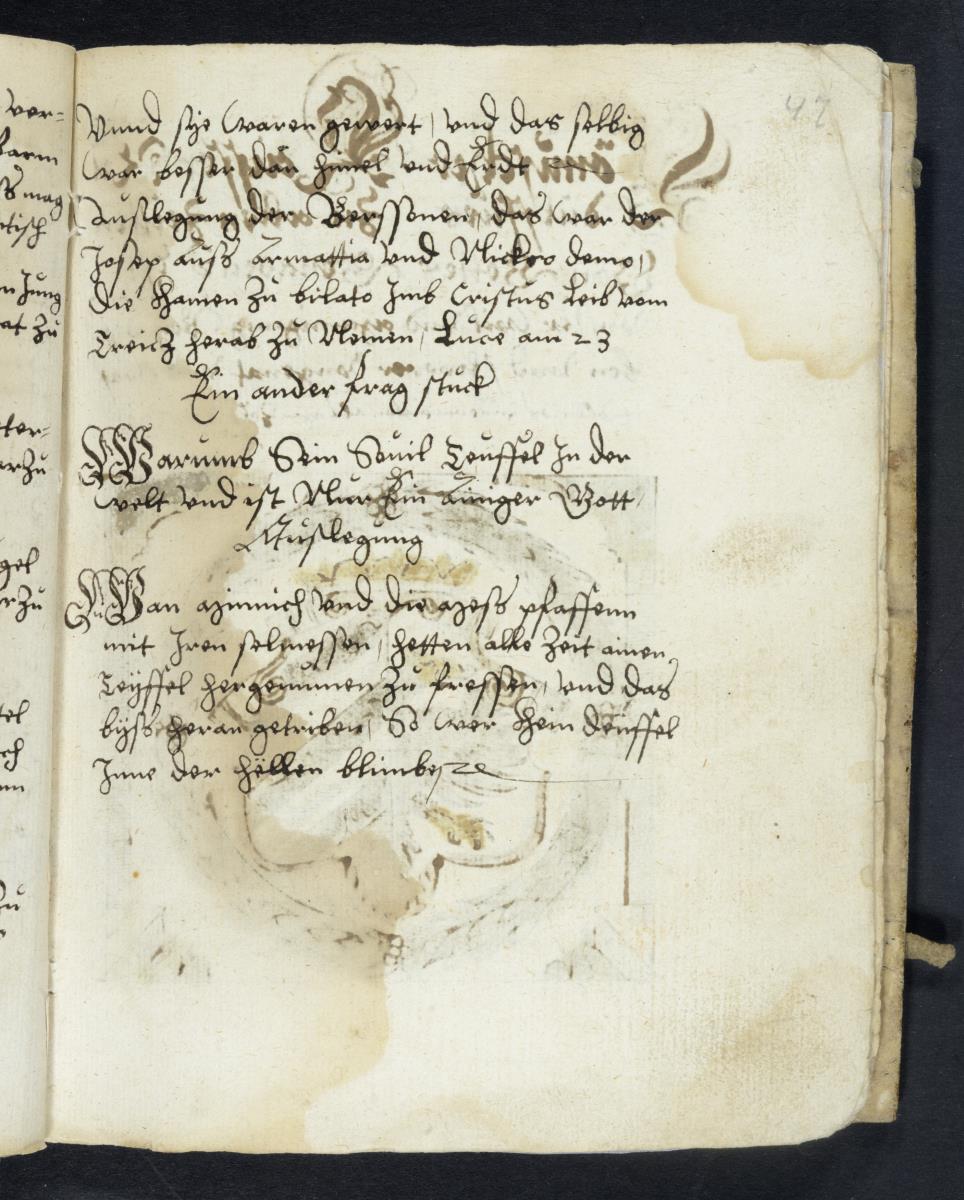 47
Vnnd sye waren gewert, vnd das selbig
war besser dan himel vnd Erdt
Auslegung der Berssonen, das war der
Josep auss Armattia vnd Nickro demo,
die Kamen Zu bilato Jmb Cristus Leib vom
Creicz herab Zu Nemen, Luce am 23
Ein ander frag stuck
Warumb Sein Souil Teuffel In der
welt vnd ist Nur Ein Ainiger Gott,
Auslegung
Wan und die mess pfaffenn
mit Iren selmessen, hetten alle Zeit ainen
Teyffel hergenumen Zu fressen, vnd das
byss heran getriben, So wer Khein deuffel
Inne der hellen
ver=
Jung
at zu
ter=
gel
zu
tel
ch
zu